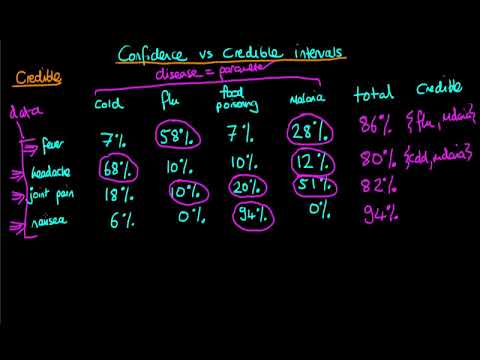 Confidence vs Credible intervals
disease = parameter
Credible
data
cold flu food poisoning Malaria total Credible
fever 7% 58% 7% 28% 86% {flu, malaria}
headache 68% 10% 10% 12% 80% {cold, malaria}
joint pain 18% 10% 20% 51% 82%
nausea 6% 0% 94% 0% 94%